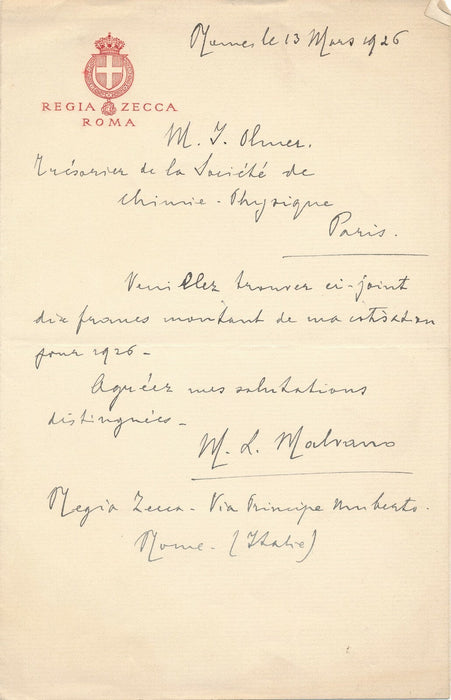 Rome le 13 Mars 1926
REGIA ZECCA
ROMA
M. J. Olmer.
Trésorier de la Société de
Chimie-Physique
Paris.
Veuillez trouver ci-joint
dix francs montant de ma cotisation
pour 1926 -
Agréez mes salutations
distinguées -
M. L. Malvano
Regia Zecca - Via Principe Umberto.
Rome. (Italie)